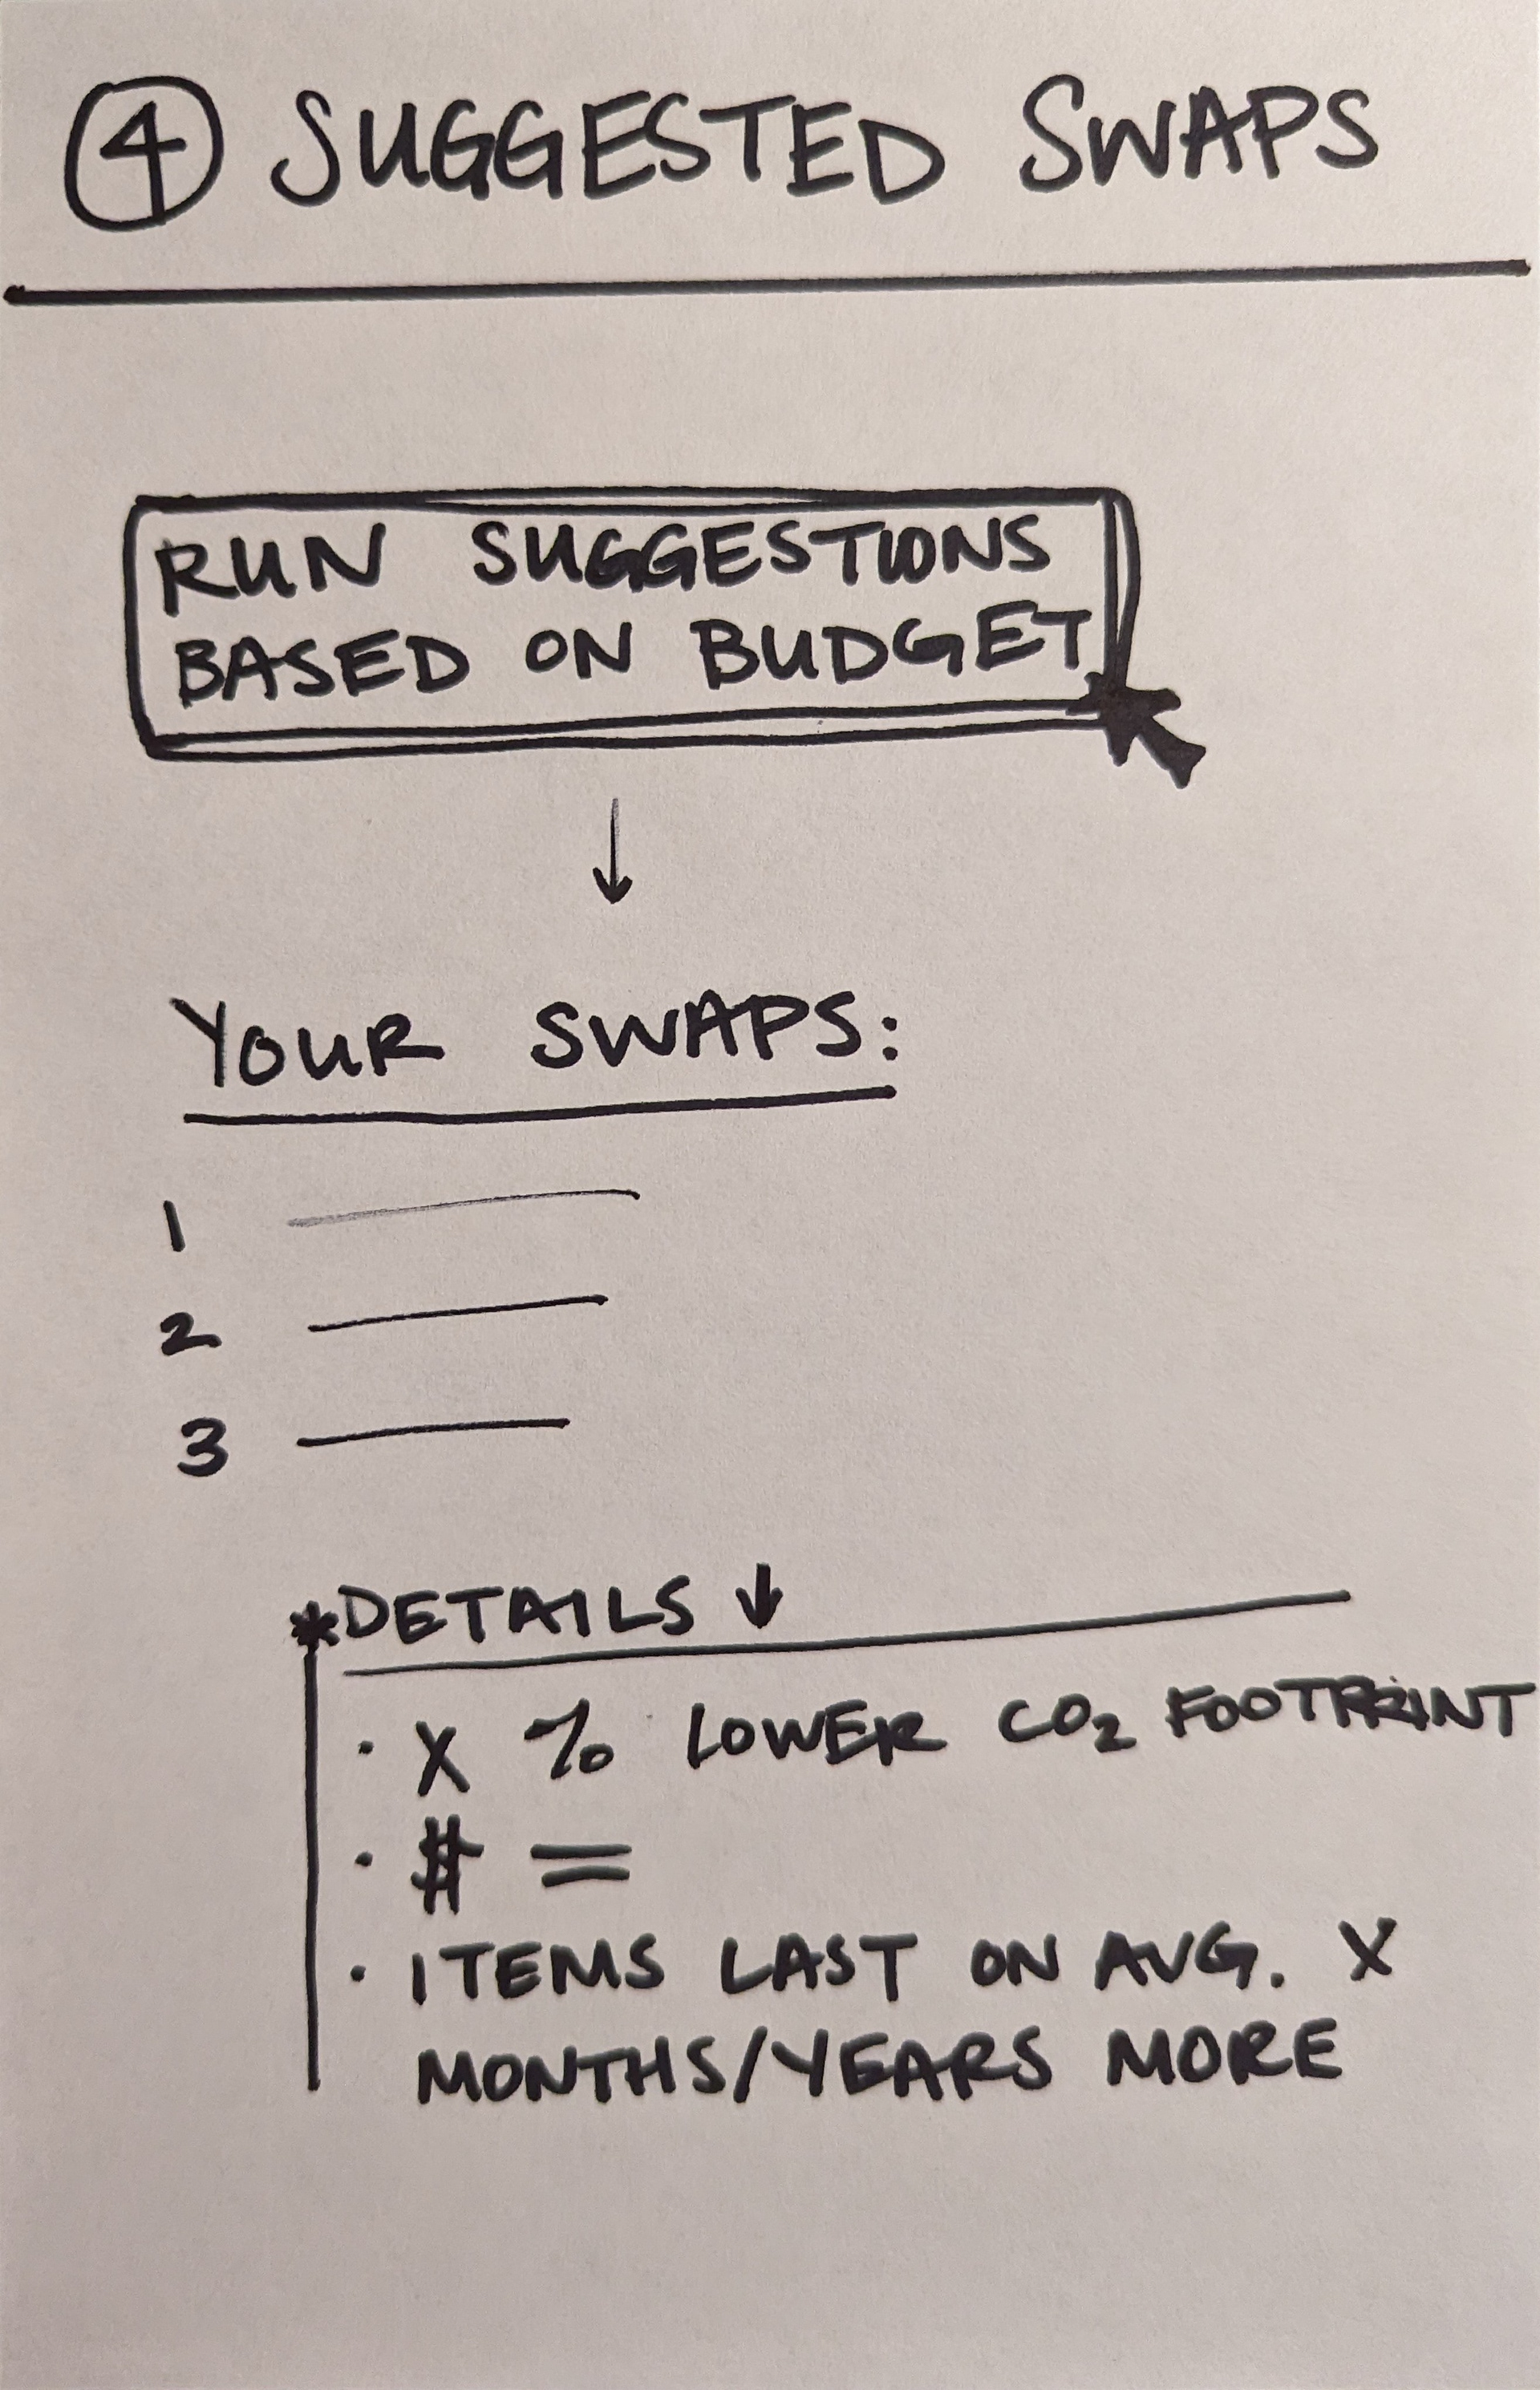 4 SUGGESTED SWAPS
RUN SUGGESTIONS
BASED ON BUDGET
↓
YOUR SWAPS:
1
2
3
*DETAILS ↓
· X % LOWER CO₂ FOOTPRINT
· # =
· ITEMS LAST ON AVG. X
MONTHS/YEARS MORE